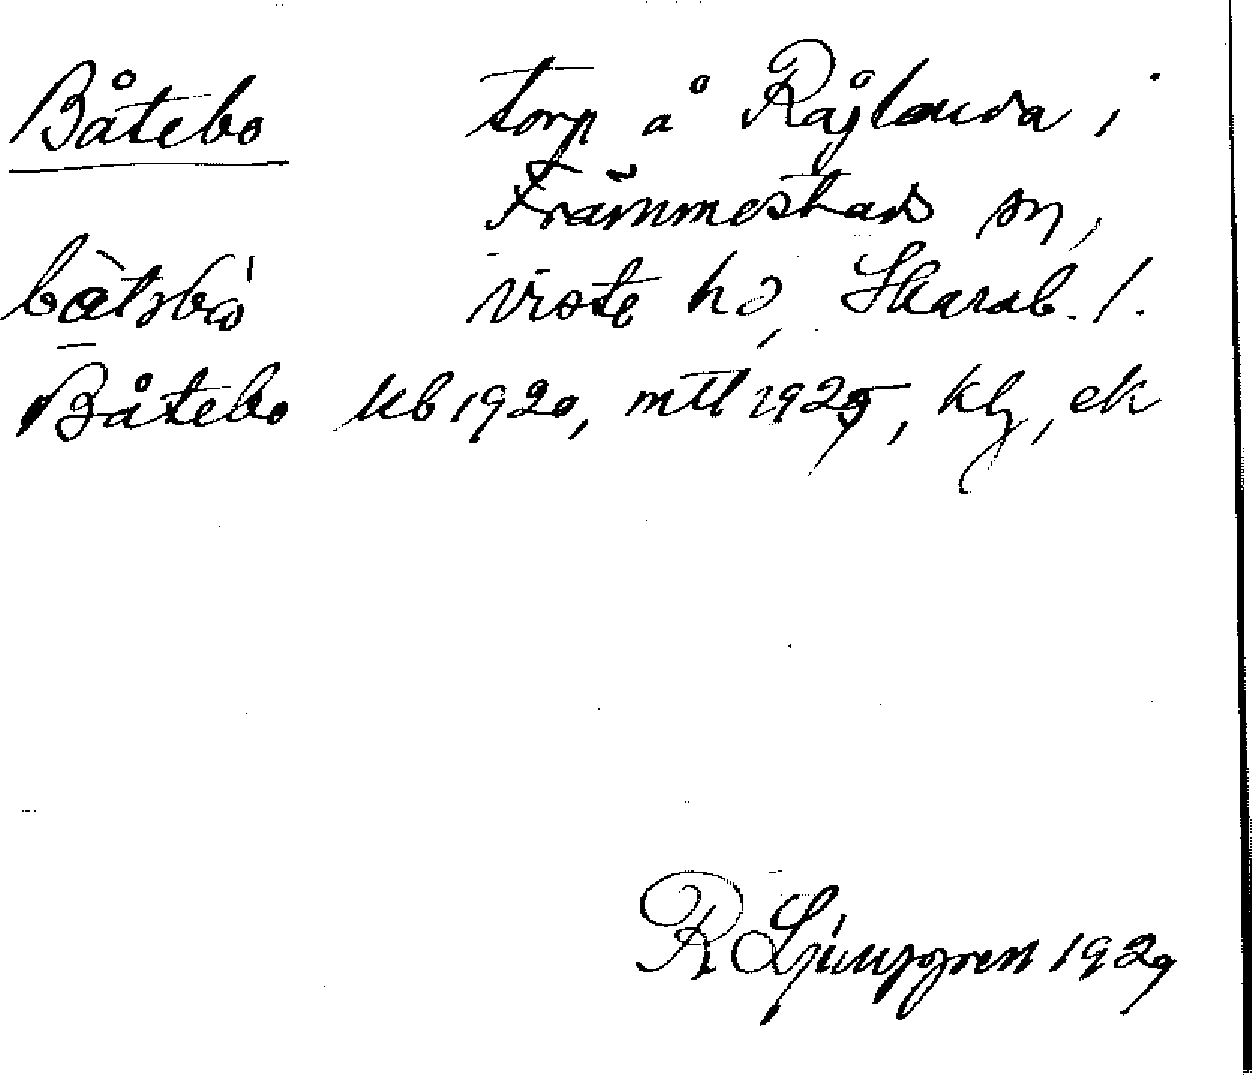 Båtebo torp å Råjlanda i
Främmestads sn,
Viste hd, Skarab. l.
Båtebo kb 1920, mtl 1925, klg, ek
R Ljunggren 1929